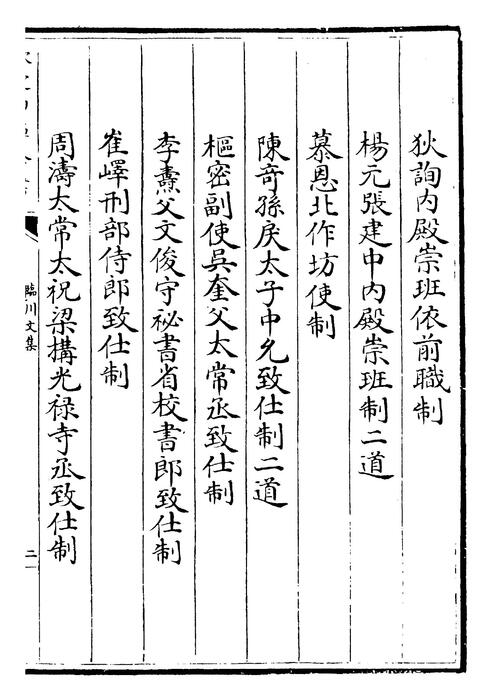 狄詢内殿崇班依前職制
楊元張建中内殿崇班制二道
慕恩北作坊使制
陳竒孫戾太子中允致仕制二道
樞密副使吳奎父太常丞致仕制
李燾父文俊守祕書省校書郎致仕制
崔嶧刑部侍郎致仕制
周濤太常太祝梁搆光禄寺丞致仕制
臨川文集
二